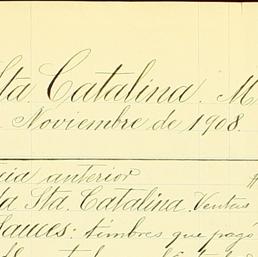 Sta Catalina. M
Noviembre de 1908.
anterior
Sta Catalina. Ventas
Sauces: timbres que pagó